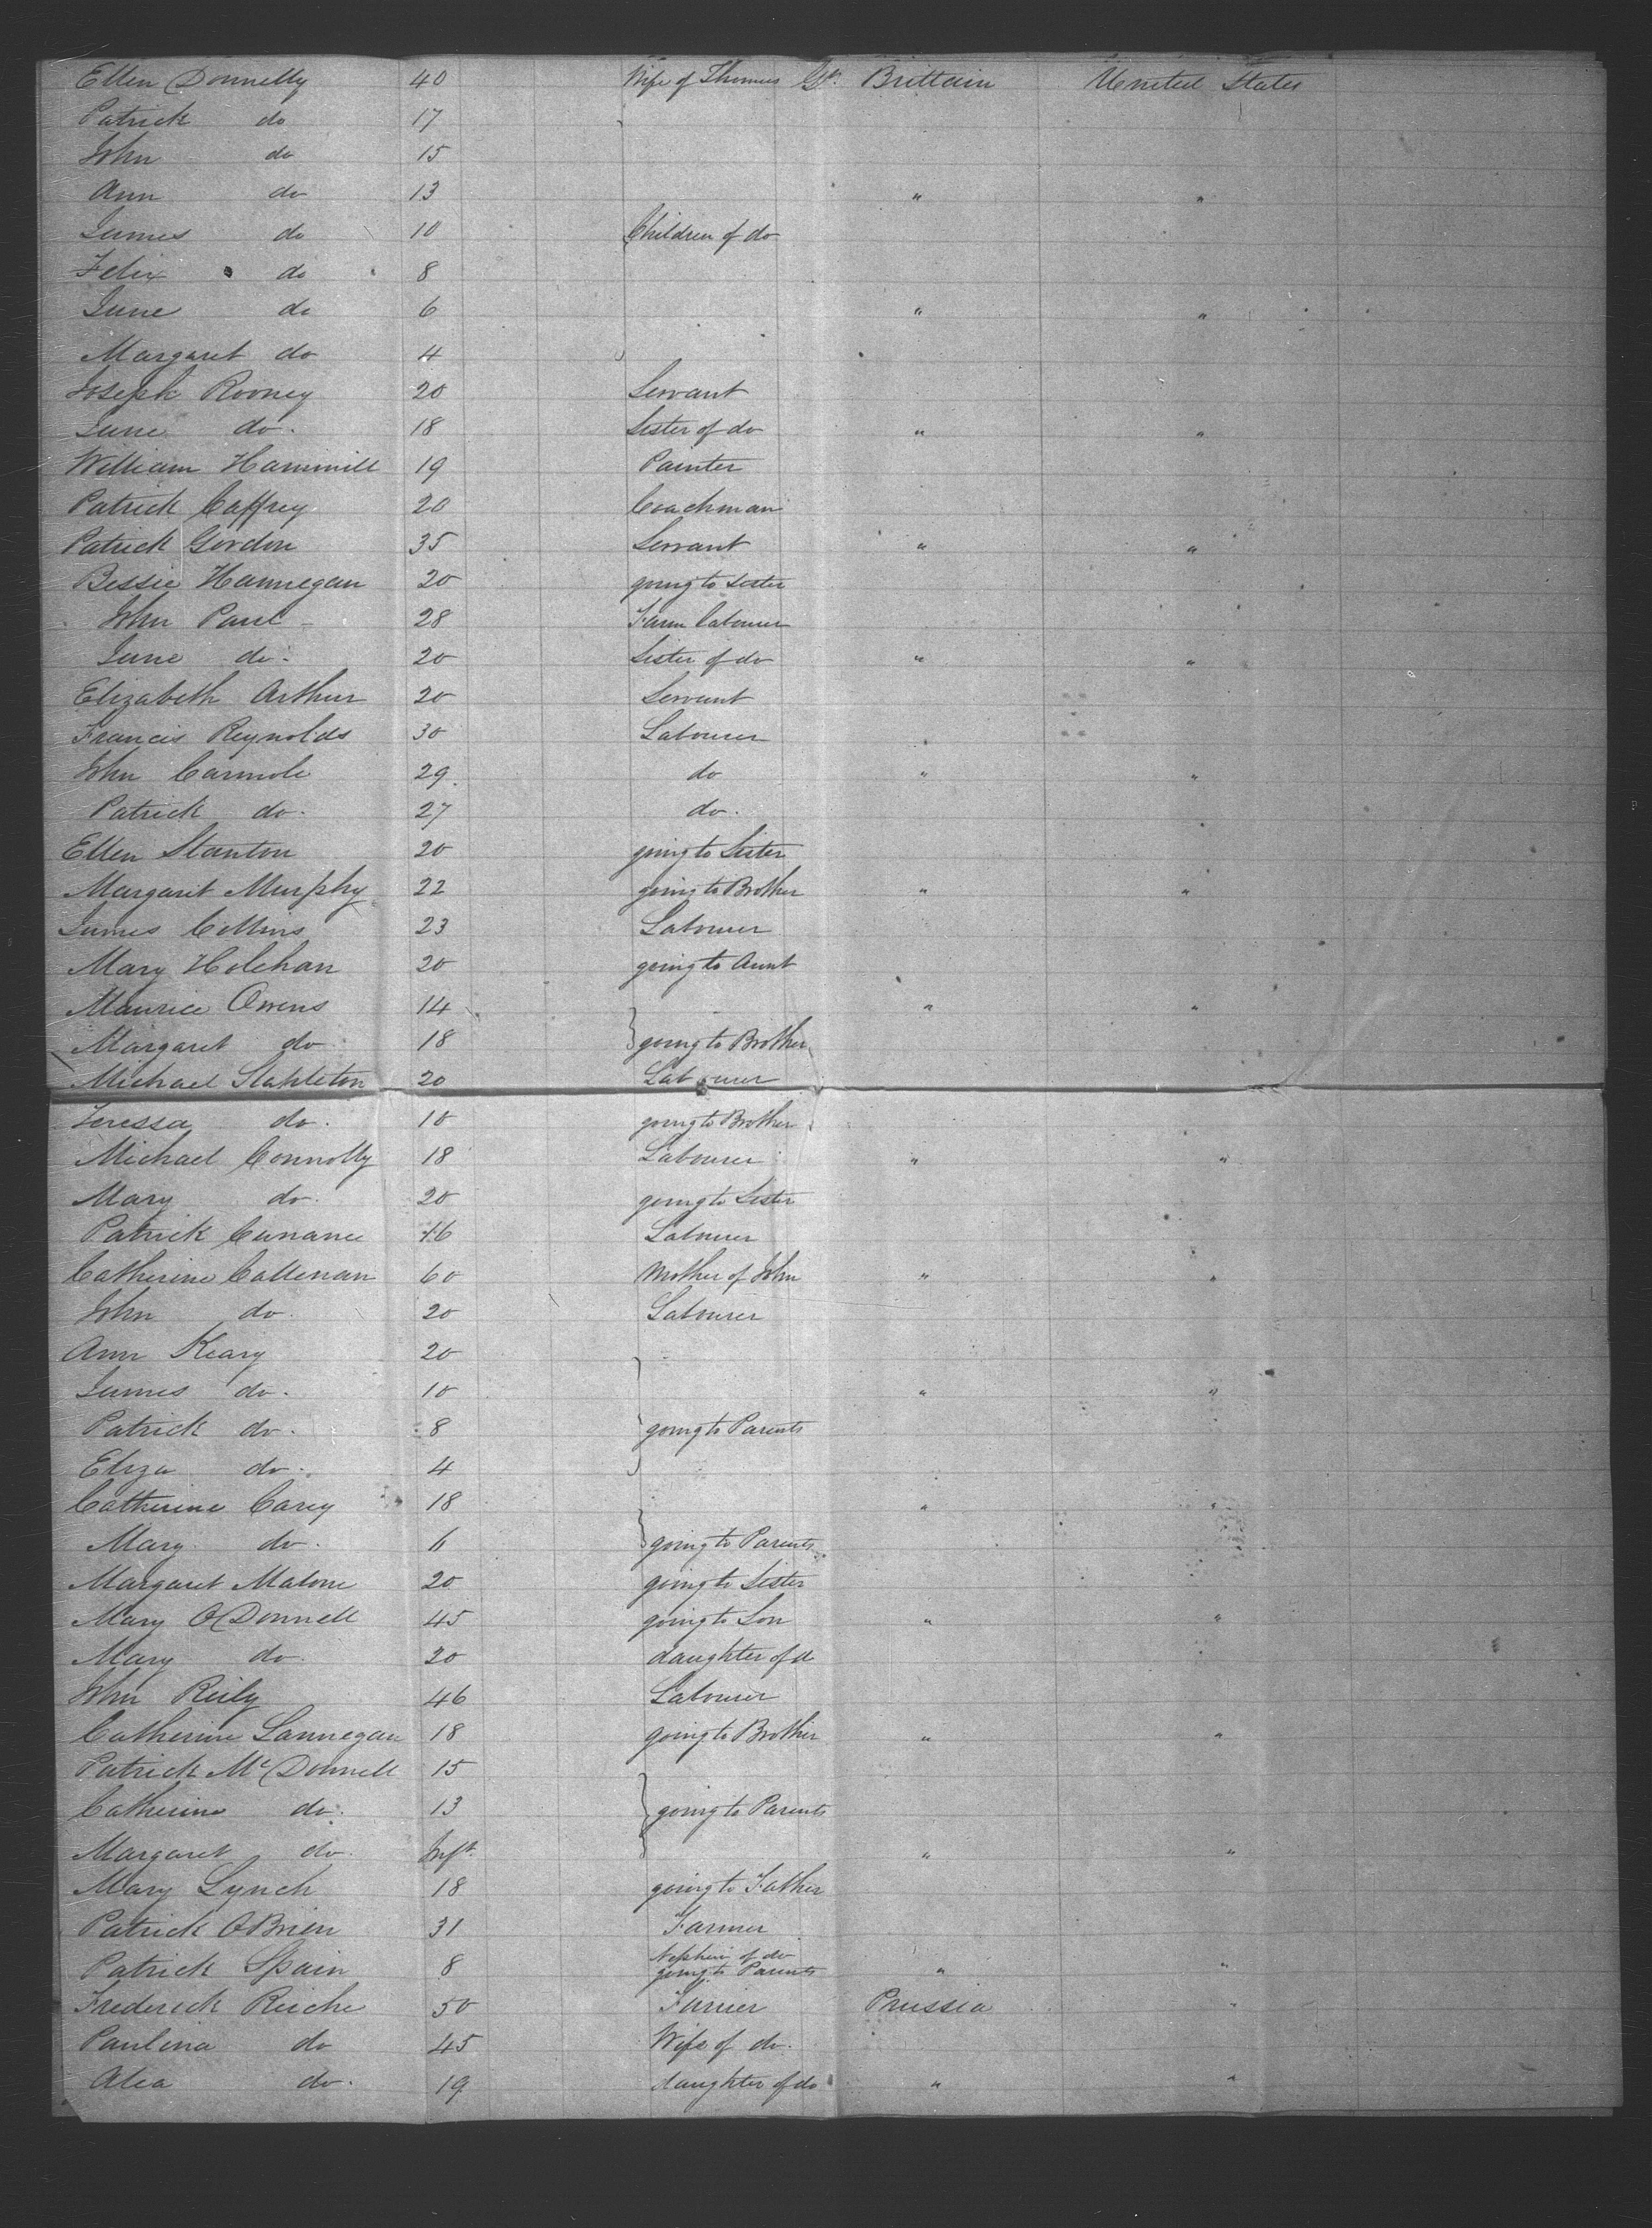 Ellen Donnelly 40 Wife of Thomas Gt. Brittain United States
Patrick do 17
John do 15
Ann do 13 " "
James do 10 Children of do
Felix do 8
Jane do 6 " "
Margaret do 4
Joseph Rooney 20 Servant
Jane do. 18 Sister of do " "
William Hammill 19 Painter
Patrick Caffrey 20 Coachman
Patrick Gordon 35 Servant " "
Bessie Hannegan 20 going to Sister
John Paul 28 Farm Labourer
Jane do. 20 Sister of do " "
Elizabeth Arthur 20 Servant
Francis Reynolds 30 Labourer
John Carmole 29 do " "
Patrick do. 27 do.
Ellen Stanton 20 going to Sister
Margaret Murphy 22 going to Brother " "
James Collins 23 Labourer
Mary Holehan 20 going to Aunt
Maurice Owens 14 " "
Margaret do 18 going to Brother
Michael Stapleton 20 Labourer
Teressa do. 10 going to Brother
Michael Connolly 18 Labourer " "
Mary do. 20 going to Sister
Patrick Cunane 46 Labourer
Catherine Callenan 60 Mother of John " "
John do. 20 Labourer
Ann Keary 20
James do. 10 " "
Patrick do. 8 going to Parents
Eliza do. 4
Catherine Carey 18 " "
Mary do. going to Parents
Margaret Malone 20 going to Sister
Mary O'Donnell 45 going to Son " "
Mary do. 20 daughter of d
John Reily 46 Labourer
Catherine Lannegan 18 going to Brother " "
Patrick McDonnell 15
Catherine do. 13 going to Parents
Margaret do. Inft. " "
Mary Lynch 18 going to Father
Patrick OBrien 31 Farmer
Patrick Spain 8 Nephew of do going to Parents " "
Frederick Reiche 50 Prussia "
Paulina do 45 Wife of do.
do. 19 daughter of do " "